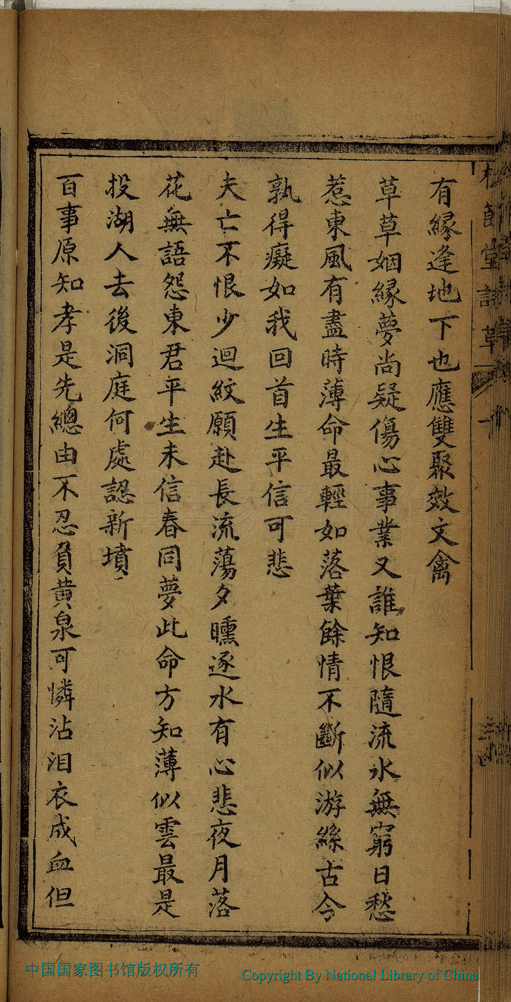 有緣逢地下也應雙聚效文禽
草草姻緣夢尚疑傷心事業又誰知恨隨流水無窮日愁
惹東風有盡時薄命最輕如落葉餘情不斷似游絲古今
孰得癡如我回首生平信可悲
夫亡不恨少迴紋願赴長流蕩夕曛逐水有心悲夜月落
花無語怨東君平生未信春同夢此命方知薄似雲最是
投湖人去後洞庭何處認新墳
百事原知孝是先總由不忍負黃泉可憐沾泪衣成血但
節堂詩草
中国国家图书馆版权所有
Copyright By National Library of China